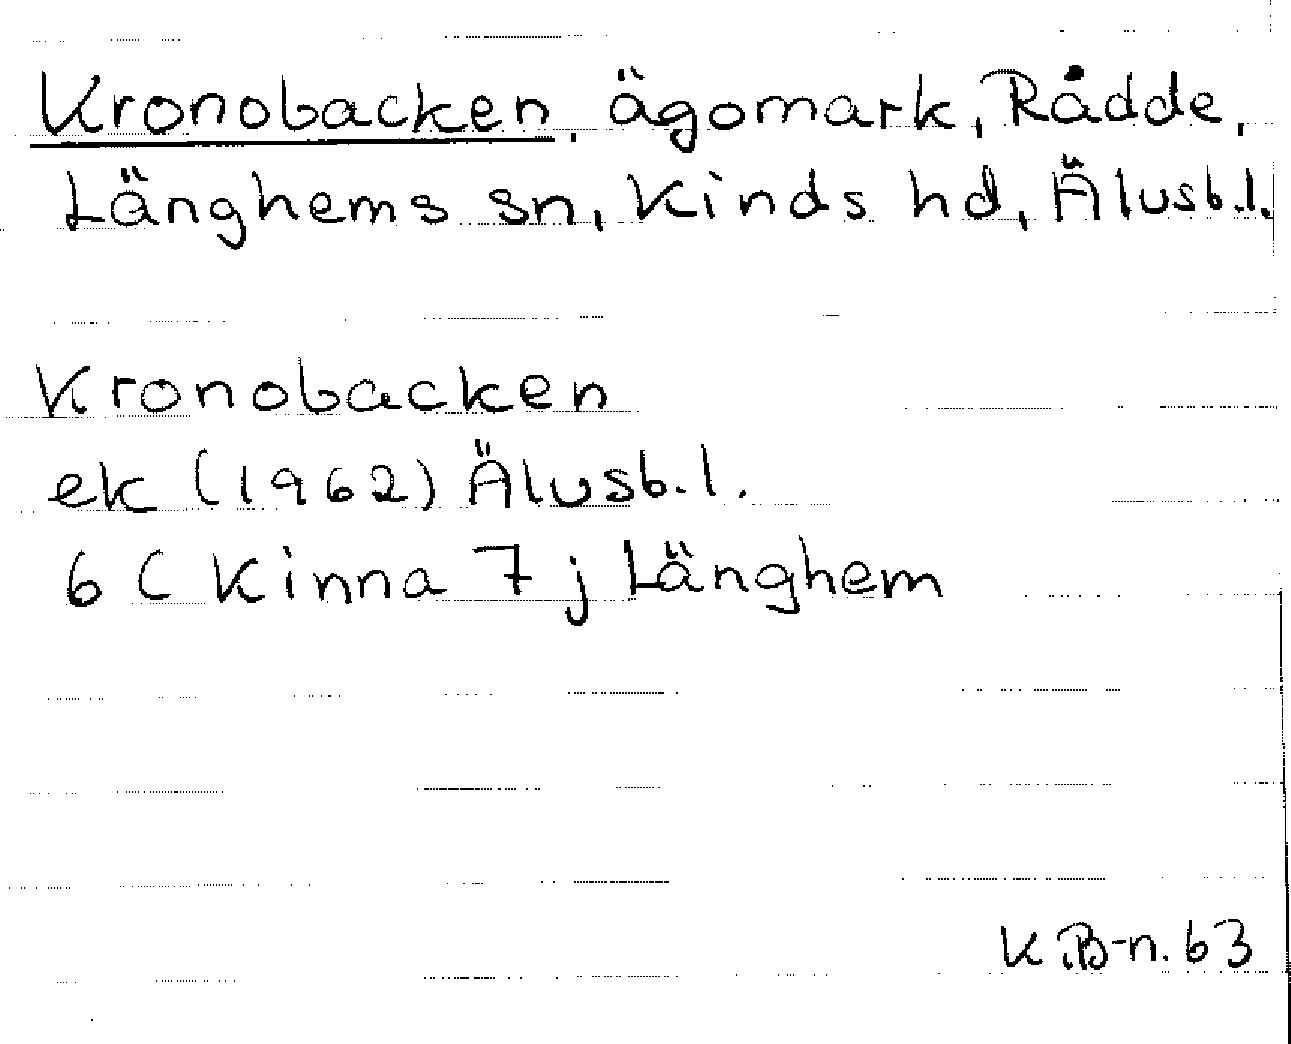 Kronobacken, ägomark, Rådde,
Länghems sn, Kinds hd, Älvsb.l.
Kronobacken
ek (1962) Älvsb.l.
6 C Kinna 7 j Länghem
K B-n. 63